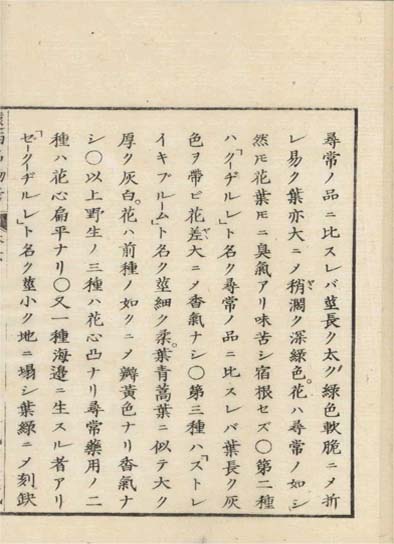 尋常ノ品ニ比スレバ莖長ク太ク綠色軟脆ニメ折
レ易ク葉亦大ニメ稍濶ク深綠色。花ハ尋常ノ如シ
然𪜈花葉𪜈ニ臭氣アリ味苦シ宿根セズ〇第二種
ハ「クーヂルレ」ト名ク尋常ノ品ニ比スレバ葉長ク灰
色ヲ帶ビ花差大ニメ香氣ナシ〇第三種ハ「ストレ
イキブルーム」ト名ク莖細ク柔。葉青蒿葉ニ似テ大ク
厚ク灰白。花ハ前種ノ如クニメ瓣黃色ナリ香氣ナ
シ〇以上野生ノ三種ハ花心凸ナリ尋常藥用ノ二
種ハ花心扁平ナリ〇又一種海邊ニ生スル者アリ
「ゼークーヂルレ」ト名ク莖小ク地ニ塌シ葉綠ニメ刻缺